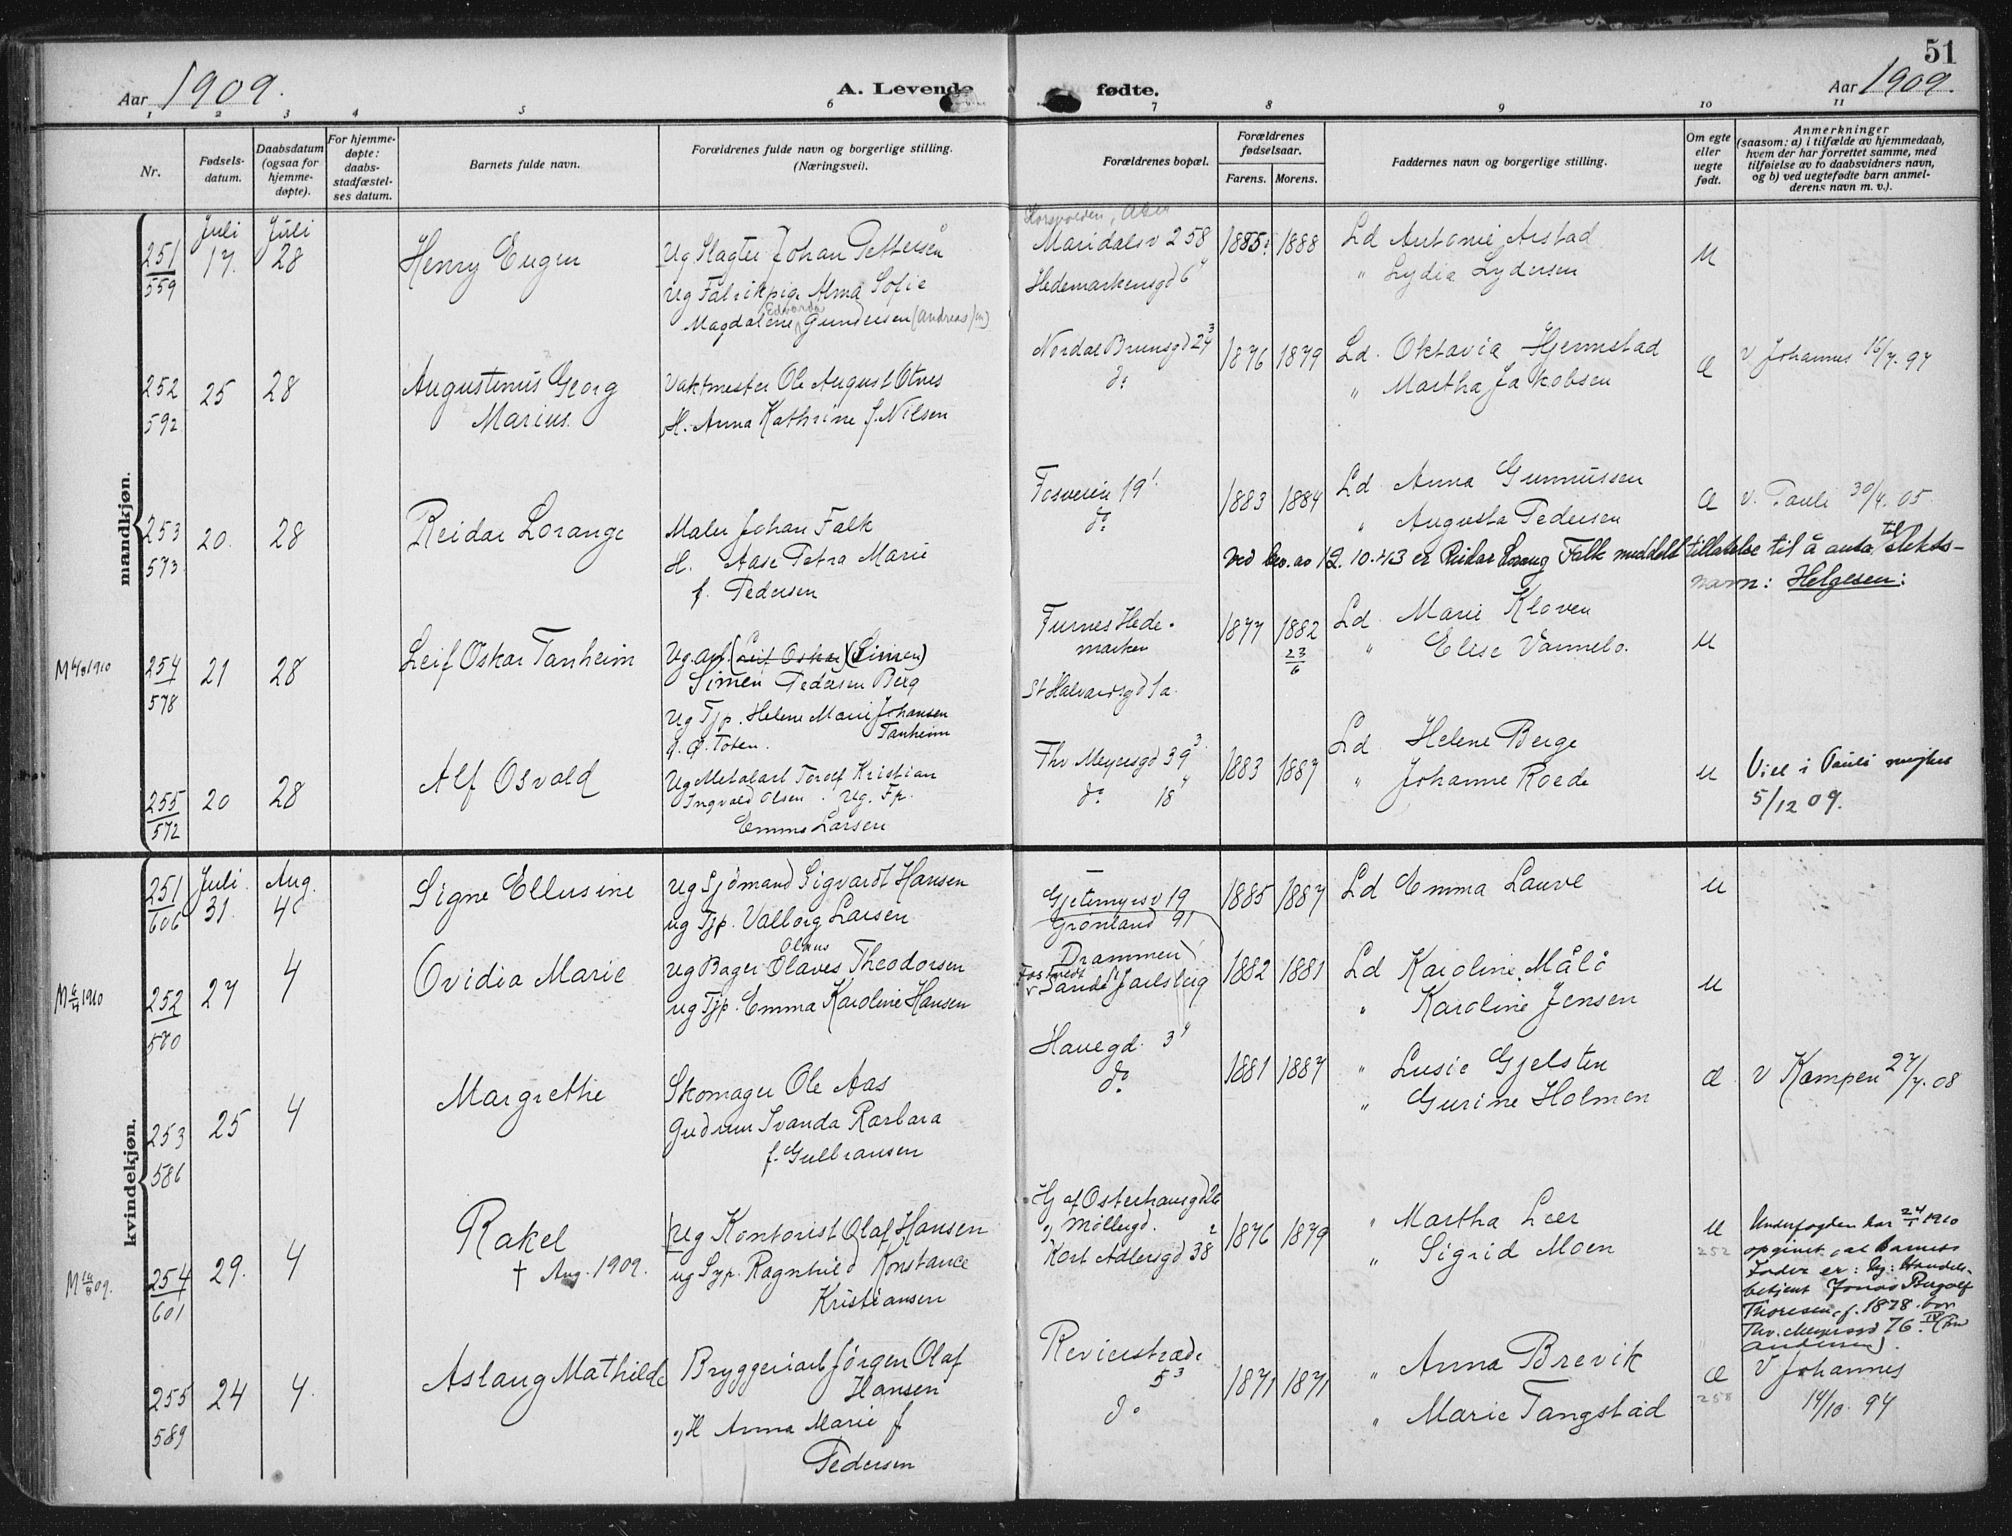 51
Aar 1909. A. Levende fødte. Aar 1909.
1 2 3 4 5 6 7 8 9 10 11
Nr.
Fødsels-
datum.
Daabsdatum
(ogsaa for
hjemme-
døpte).
For hjemme-
døpte:
daabs-
stadfæstel-
ses datum.
Barnets fulde navn.
Forældrenes fulde navn og borgerlige stilling.
(Næringsvei).
Forældrenes bopæl.
Forældrenes
fødselsaar.
Farens. Morens.
Faddernes navn og borgerlige stilling.
Om egte
eller
uegte
født.
Anmerkninger
(saasom: a) i tilfælde av hjemmedaab,
hvem der har forrettet samme, med
tilføielse av to daabsvidners navn,
og b) ved uegtefødte barn anmel-
derens navn m. v.).
mandkjøn.
Juli Juli
251
559
17. 28
Henry Eugen
Ug Slagter Johan Pettersen
Ug Fabrikpige Alma Sofie
Edvarda
Magdalene Gundersen (Andreas/en)
Maridalsv 258
Hedemarkensgd 6
1885 1888
Ld Antonie Arstad
" Lydia Lydersen
U
252
592
25 28
Augustinus Georg
Marius.
Vaktmester Ole August Otnes
H. Anna Kathrine f. Nilsen
Nordal Brunsgd 24 3
do
1876 1879
Ld. Oktavia Hjemstad
" Martha Jakobsen
Æ
v Johannes 16/7. 97
253
593
20. 28
Reidar Lorange
Maler Johan Falk
H. Aase Petra Marie
f. Pedersen
Fosveien 19
do
1883 1884
Ld. Anna Gunnussen
" Augusta Pedersen
Æ
v. Pauli 30/4. 05
ved bev. av 12.10.43 er Reidar Lorang Falk meddelt tillatelse til å anta til slekts-
navn: Helgesen:
254
578
21 28
Leif Oskar Tanheim
Ug. arb. (Leif Oskar) (Simen)
Simen Pedersen Berg
Ug Tjp. Helene Marie Johansen
Tanheim
Ø. Toten.
Furnes Hede-
marken
St Halvardsgd 1a.
1877 1882
23
6
Ld. Marie Kloven
" Elise Vannebo.
U
255
572
20 28
Alf Osvald
Ug Metalarb Torolf Kristian
Ingvald Olsen. Ug. Fp.
Emma Larsen
Thv Meyersgd 39 3
do 18
1883 1887
Ld. Helene Berge
" Johanne Roede
U
Viet i Pauli
5/12 09.
kvindekjøn.
Juli Aug.
251
606
31. 4
Signe Ellusine
Ug Sjømand Sigvardt Hansen
ug Tjp. Valborg Larsen
Gjetemyrsv 19
Grønland 91
1885 1887
Ld Emma Lauve
U
252
580
27 4
Ovidia Marie
Olaus
Ug Bager Olaves Theodorsen
ug Tjp. Emma Karoline Hansen
Drammen
Sande Jarlsberg
1882 1881
Ld Karoline Målø
" Karoline Jensen
U
253
586
25 4
Margrethe
Skomager Ole Aas
Gudrun Ivanda Barbara
f. Gulbransen
Havegd. 3
do
1881 1887
" Lusie Gjelsten
" Gurine Holmen
Æ
v Kampen 27/7. 08
254
601
29. 4
Rakel
† Aug. 1909.
Ug Kontorist Olaf Hansen
ug Syp. Ragnhild Konstance
Kristiansen
Hj af Osterhausgd
og Møllergd.
Kort Adlersgd 38 2
1876 1879
" Martha Leer
" Sigrid Moen
U
252
Underfogden har 24/1 1910
opgivet, at Barnets
Fader er: Ug: Handels-
betjent Jonas Bergolf
Thoresen, f. 1878. bor
Thv. Meyersgd 76. IV (bu
Andersen).
255
589
24 4.
Aslaug Mathilde
Bryggeriarb Jørgen Olaf
Hansen
og H Anna Marie f
Pedersen
Revierstræde
5 3
do
1871 1871
" Anna Brevik
" Marie Tangstad
Æ
258
V Johannes
14/10. 97